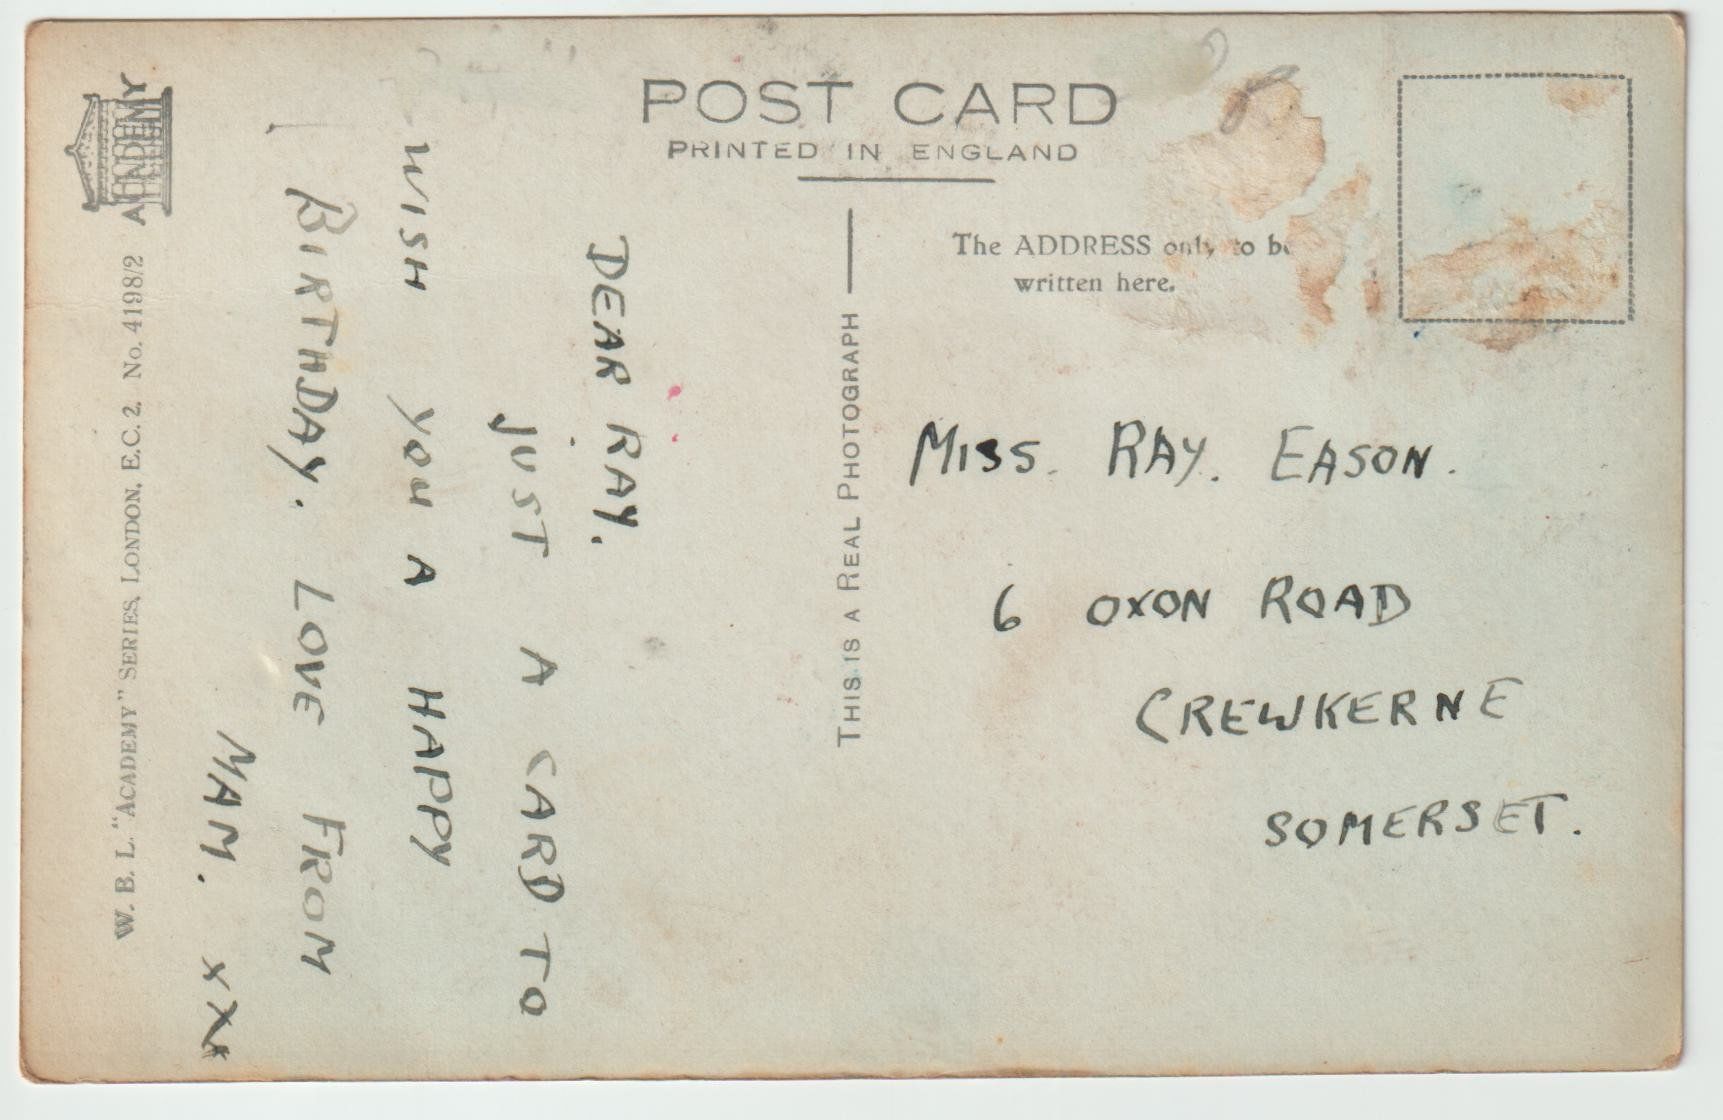 POST CARD
PRINTED IN ENGLAND
The ADDRESS only to be
written here.
THIS IS A REAL PHOTOGRAPH
MISS. RAY. EASON.
6 OXON ROAD
CREWKERNE
SOMERSET.
DEAR RAY.
JUST A CARD TO
WISH YOU A HAPPY
BIRTHDAY. LOVE FROM
MAM. xxx
ACADEMY
W. B. L. "ACADEMY" SERIES, LONDON, E.C. 2. No. 4198/2